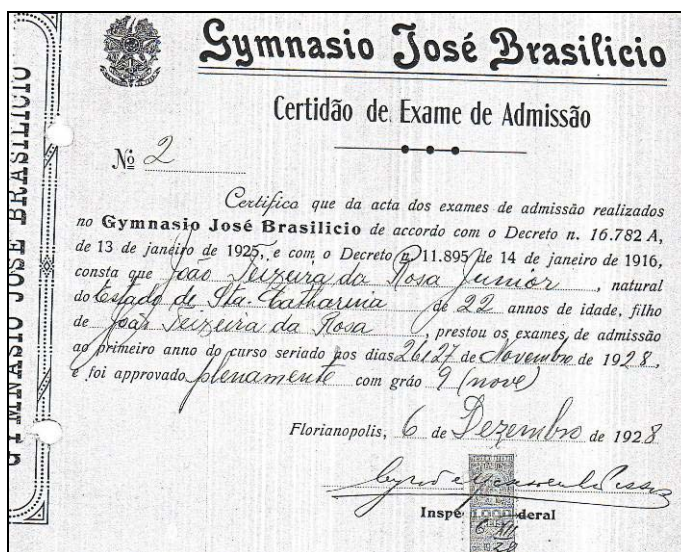 Gymnasio José Brasilicio
Certidão de Exame de Admissão
Nº 2
Certifica que da acta dos exames de admissão realizados
no Gymnasio José Brasilicio de accordo com o Decreto n. 16.782 A,
de 13 de janeiro de 1925, e com o Decreto n. 11.895 de 14 de janeiro de 1916,
consta que João Teixeira da Rosa Junior, natural
do Estado de Sta. Catharina de 22 annos de idade, filho
de João Teixeira da Rosa, prestou os exames de admissão
ao primeiro anno do curso seriado nos dias 26 e 27 de Novembro de 1928,
e foi approvado plenamente com gráo 9 (nove)
Florianopolis, 6 de Dezembro de 1928
Inspe deral
6 XII
28
GYMNASIO JOSÉ BRASILICIO